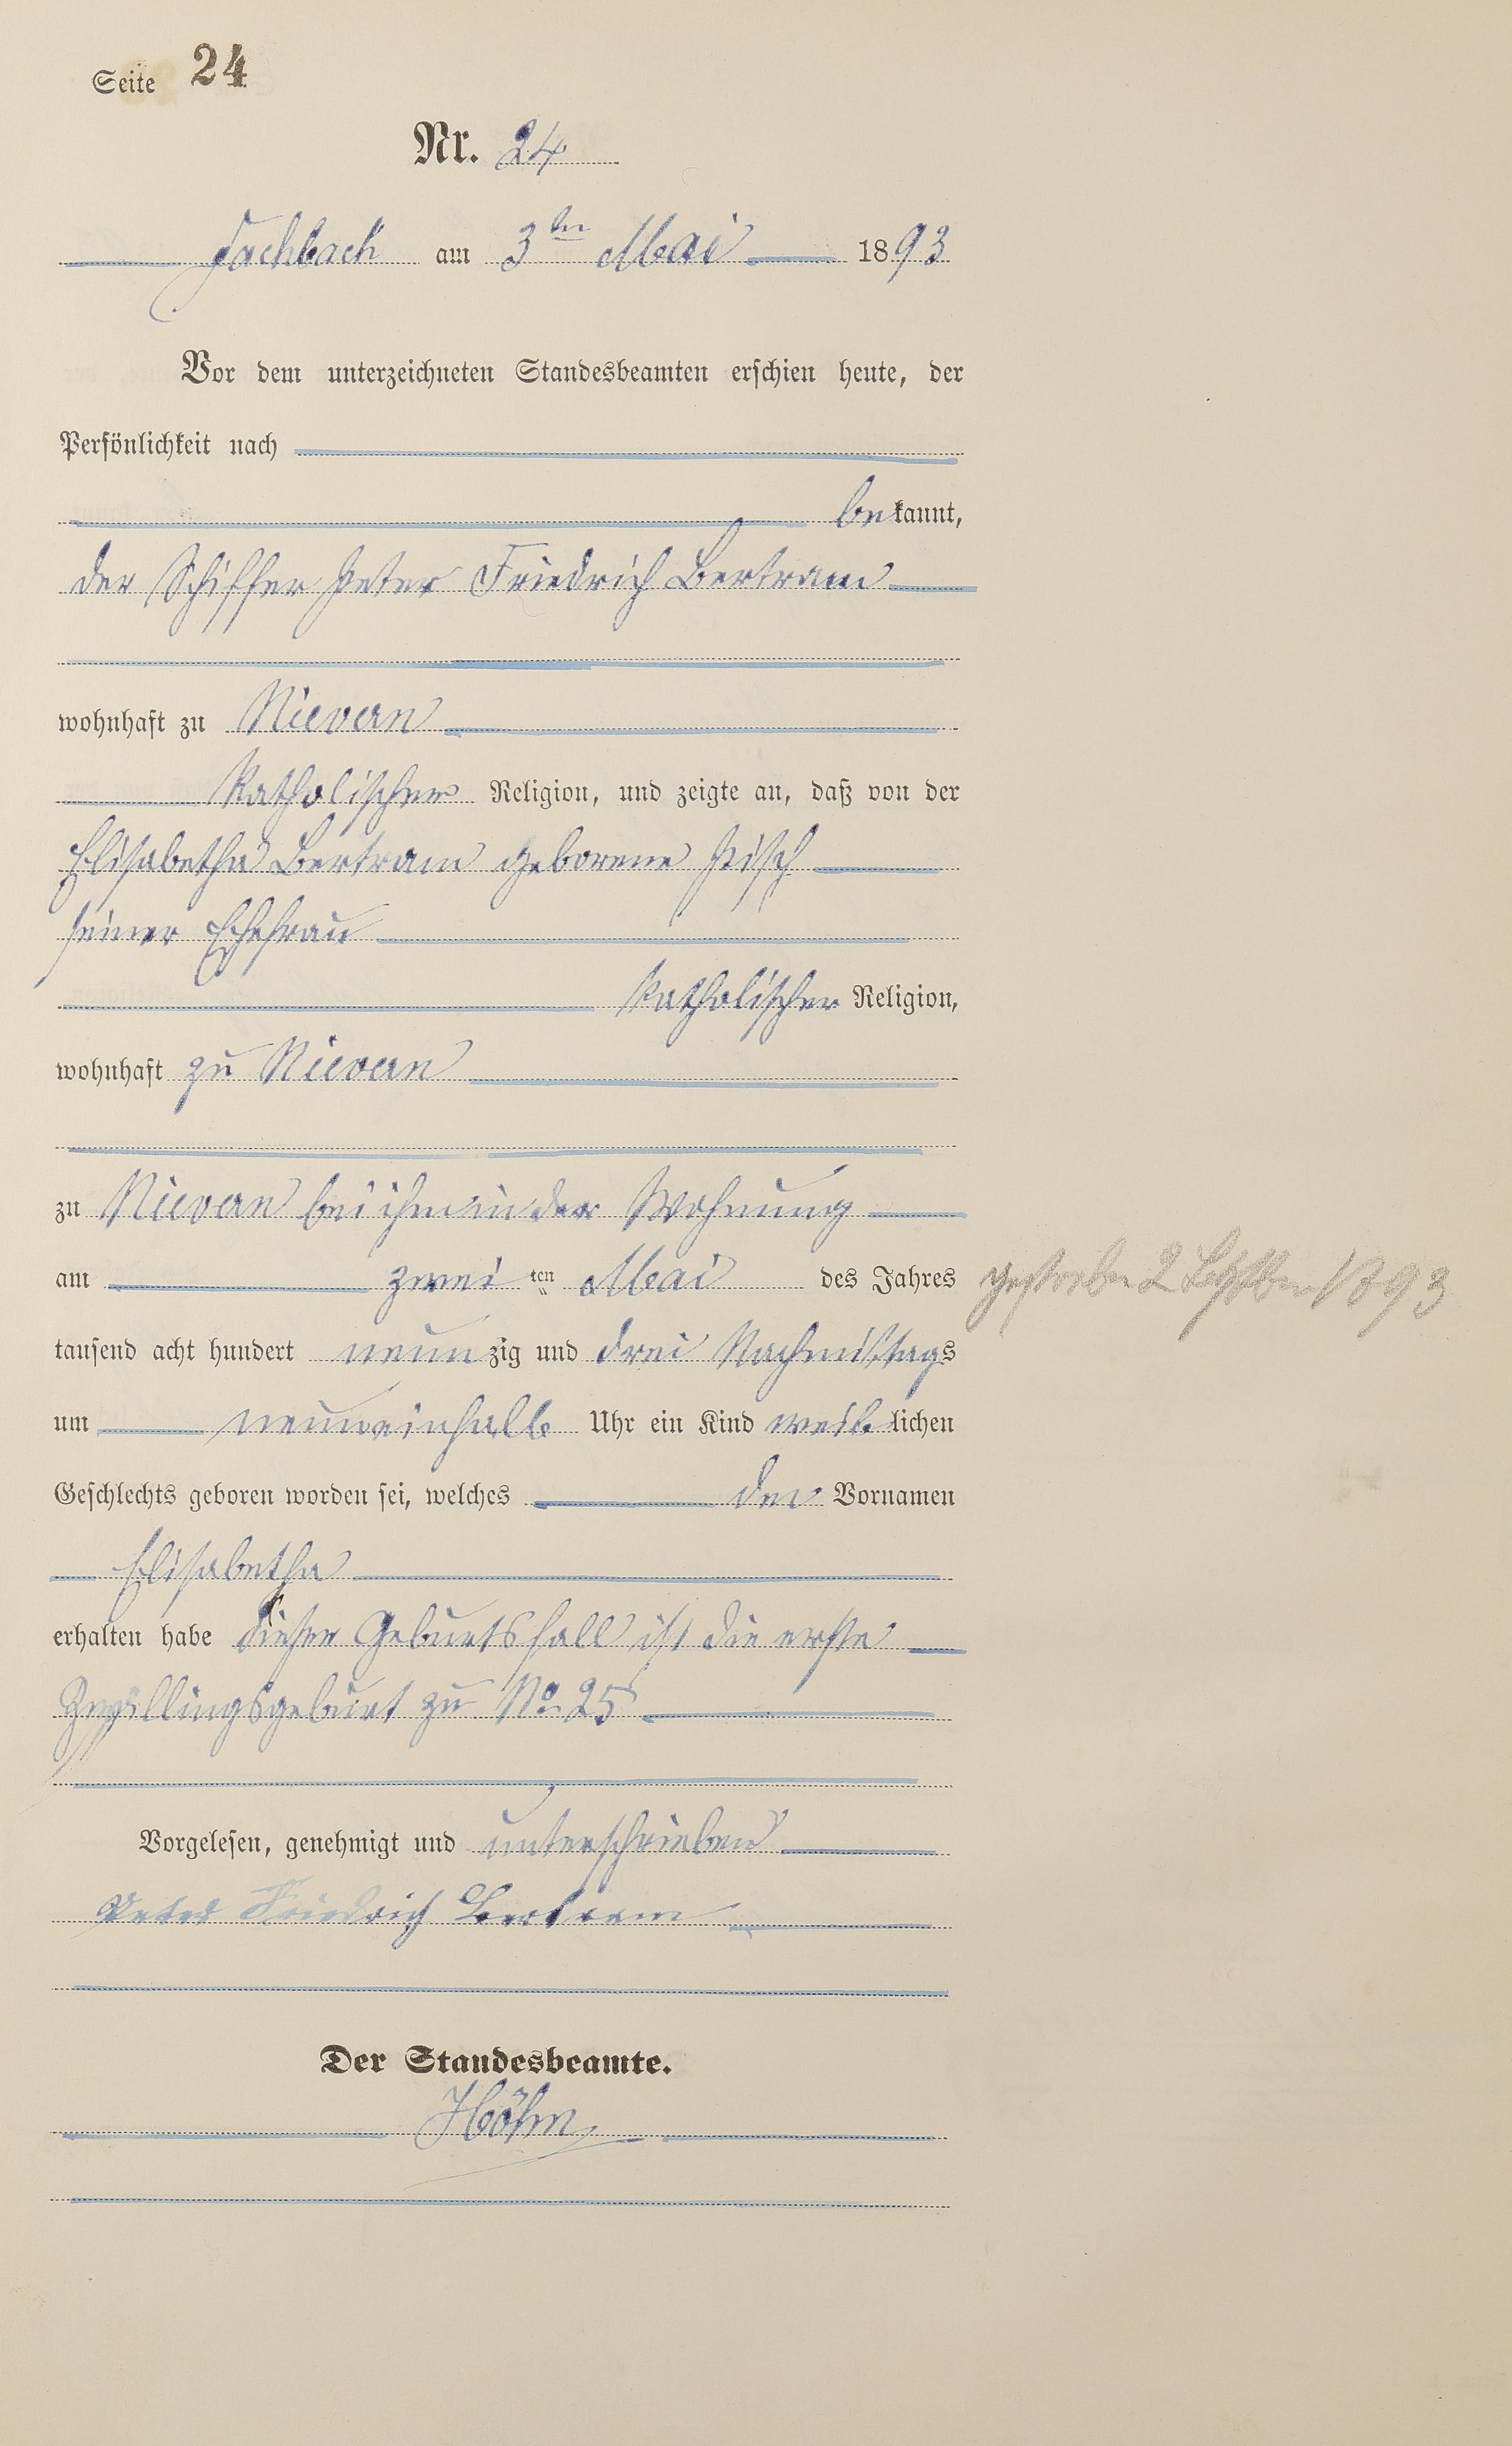 Seite 24
Nr. 24
Fachbach am 3ten Mai 1893
Vor dem unterzeichneten Standesbeamten erschien heute, der
Persönlichkeit nach
bekannt,
der Schiffer Peter Friedrich Bertram
wohnhaft zu Nievern
katholischer Religion, und zeigte an, daß von der
Elisabetha Bertram geborene
seiner Ehefrau
katholischer Religion,
wohnhaft zu Nievern
zu Nievern bei ihm in der Wohnung
am zwei ten Mai des Jahres
tausend acht hundert neunzig und drei Nachmittags
um neuneinhalb Uhr ein Kind weiblichen
Geschlechts geboren worden sei, welches den Vornamen
Elisabetha
erhalten habe dieser Geburtsfall ist die erste
Zwillingsgeburt zu No 25
Vorgelesen, genehmigt und unterschrieben
Peter Friedrich Bertram
Der Standesbeamte.
Höhn
gestorben 2 1893